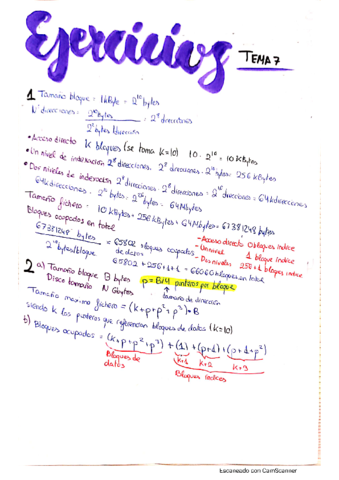 Ejercicios TEMA 7
1 Tamaño bloque = 1kByte = 2^10 bytes
Nº direcciones = 2^10 bytes / 2^2 bytes/dirección = 2^8 direcciones
• Acceso directo K bloques (se toma K=10) 10 · 2^10 = 10 KBytes
• Un nivel de indexación 2^8 direcciones. 2^8 direcciones · 2^10 bytes = 256 KBytes
• Dos niveles de indexación 2^8 direcciones · 2^8 direcciones = 2^16 direcciones = 64k direcciones
64k direcciones · 2^10 bytes = 64MBytes
Tamaño fichero = 10 KBytes + 256 KBytes + 64MBytes = 67381248 bytes
Bloques ocupados en total
67381248 bytes / 2^10 bytes/bloque = 65802 bloques ocupados de datos
- Acceso directo 0 bloques índice
- Un nivel 1 bloque índice
- Dos niveles 256+1 bloques índice
65802 + 256 + 1 + 1 = 66060 bloques en total
2 a) Tamaño bloque B bytes
Disco tamaño N Gbytes
p = B/M punteros por bloque
tamaño de dirección
Tamaño máximo fichero = (k + p + p^2 + p^3) · B
siendo k los punteros que referencian bloques de datos (k=10)
b) Bloques ocupados = (k + p + p^2 + p^3) + (1) + (p+1) + (p+1+p^2)
Bloques de datos
k+1 k+2 k+3
Bloques índices
Escaneado con CamScanner